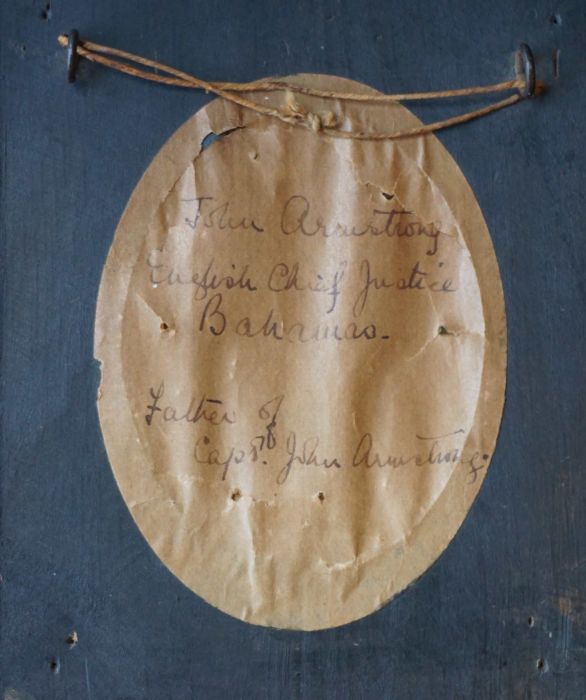 John Armstrong
English Chief Justice
Bahamas.
Father of
Capt. John Armstrong.